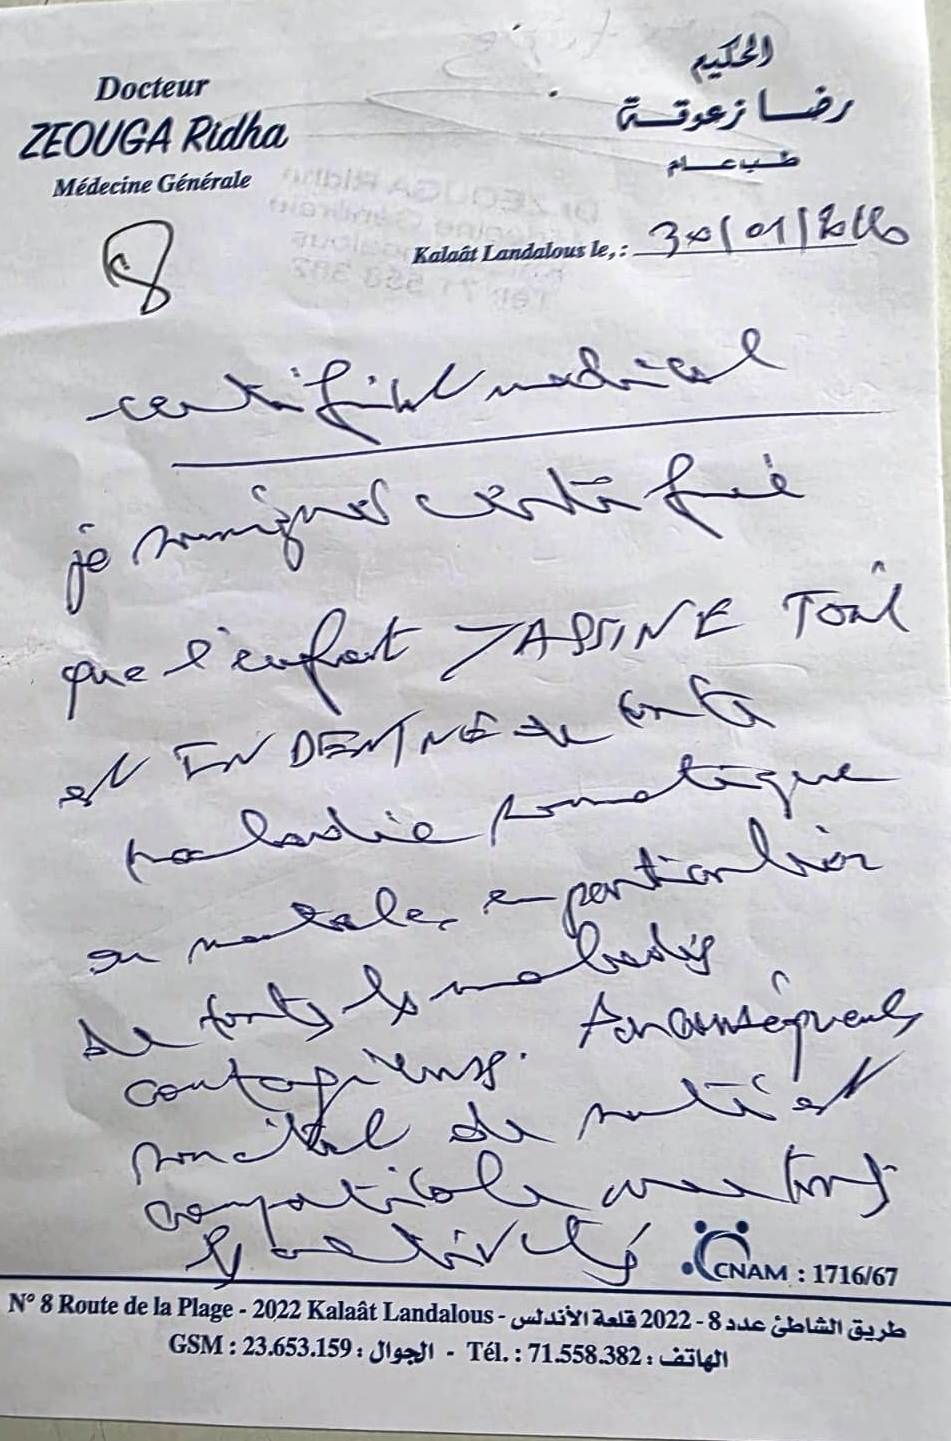 Docteur
ZEOUGA Ridha
Médecine Générale
الحكيم
رضا زعوقة
طب عام
Kalaât Landalous le, : 30/01/
certificat médical
je soussigné certifie
que l'enfant YASSINE
est INDEMNE de toute
maladie somatique
ou mentale, en particulier
de toutes les maladies
contagieuses. En conséquence
son état de santé est
compatible avec toutes
les activités
CNAM : 1716/67
N° 8 Route de la Plage - 2022 Kalaât Landalous - طريق الشاطئ عدد 8 - 2022 قلعة الأندلس
GSM : 23.653.159 : الجوال - Tél. : 71.558.382 : الهاتف